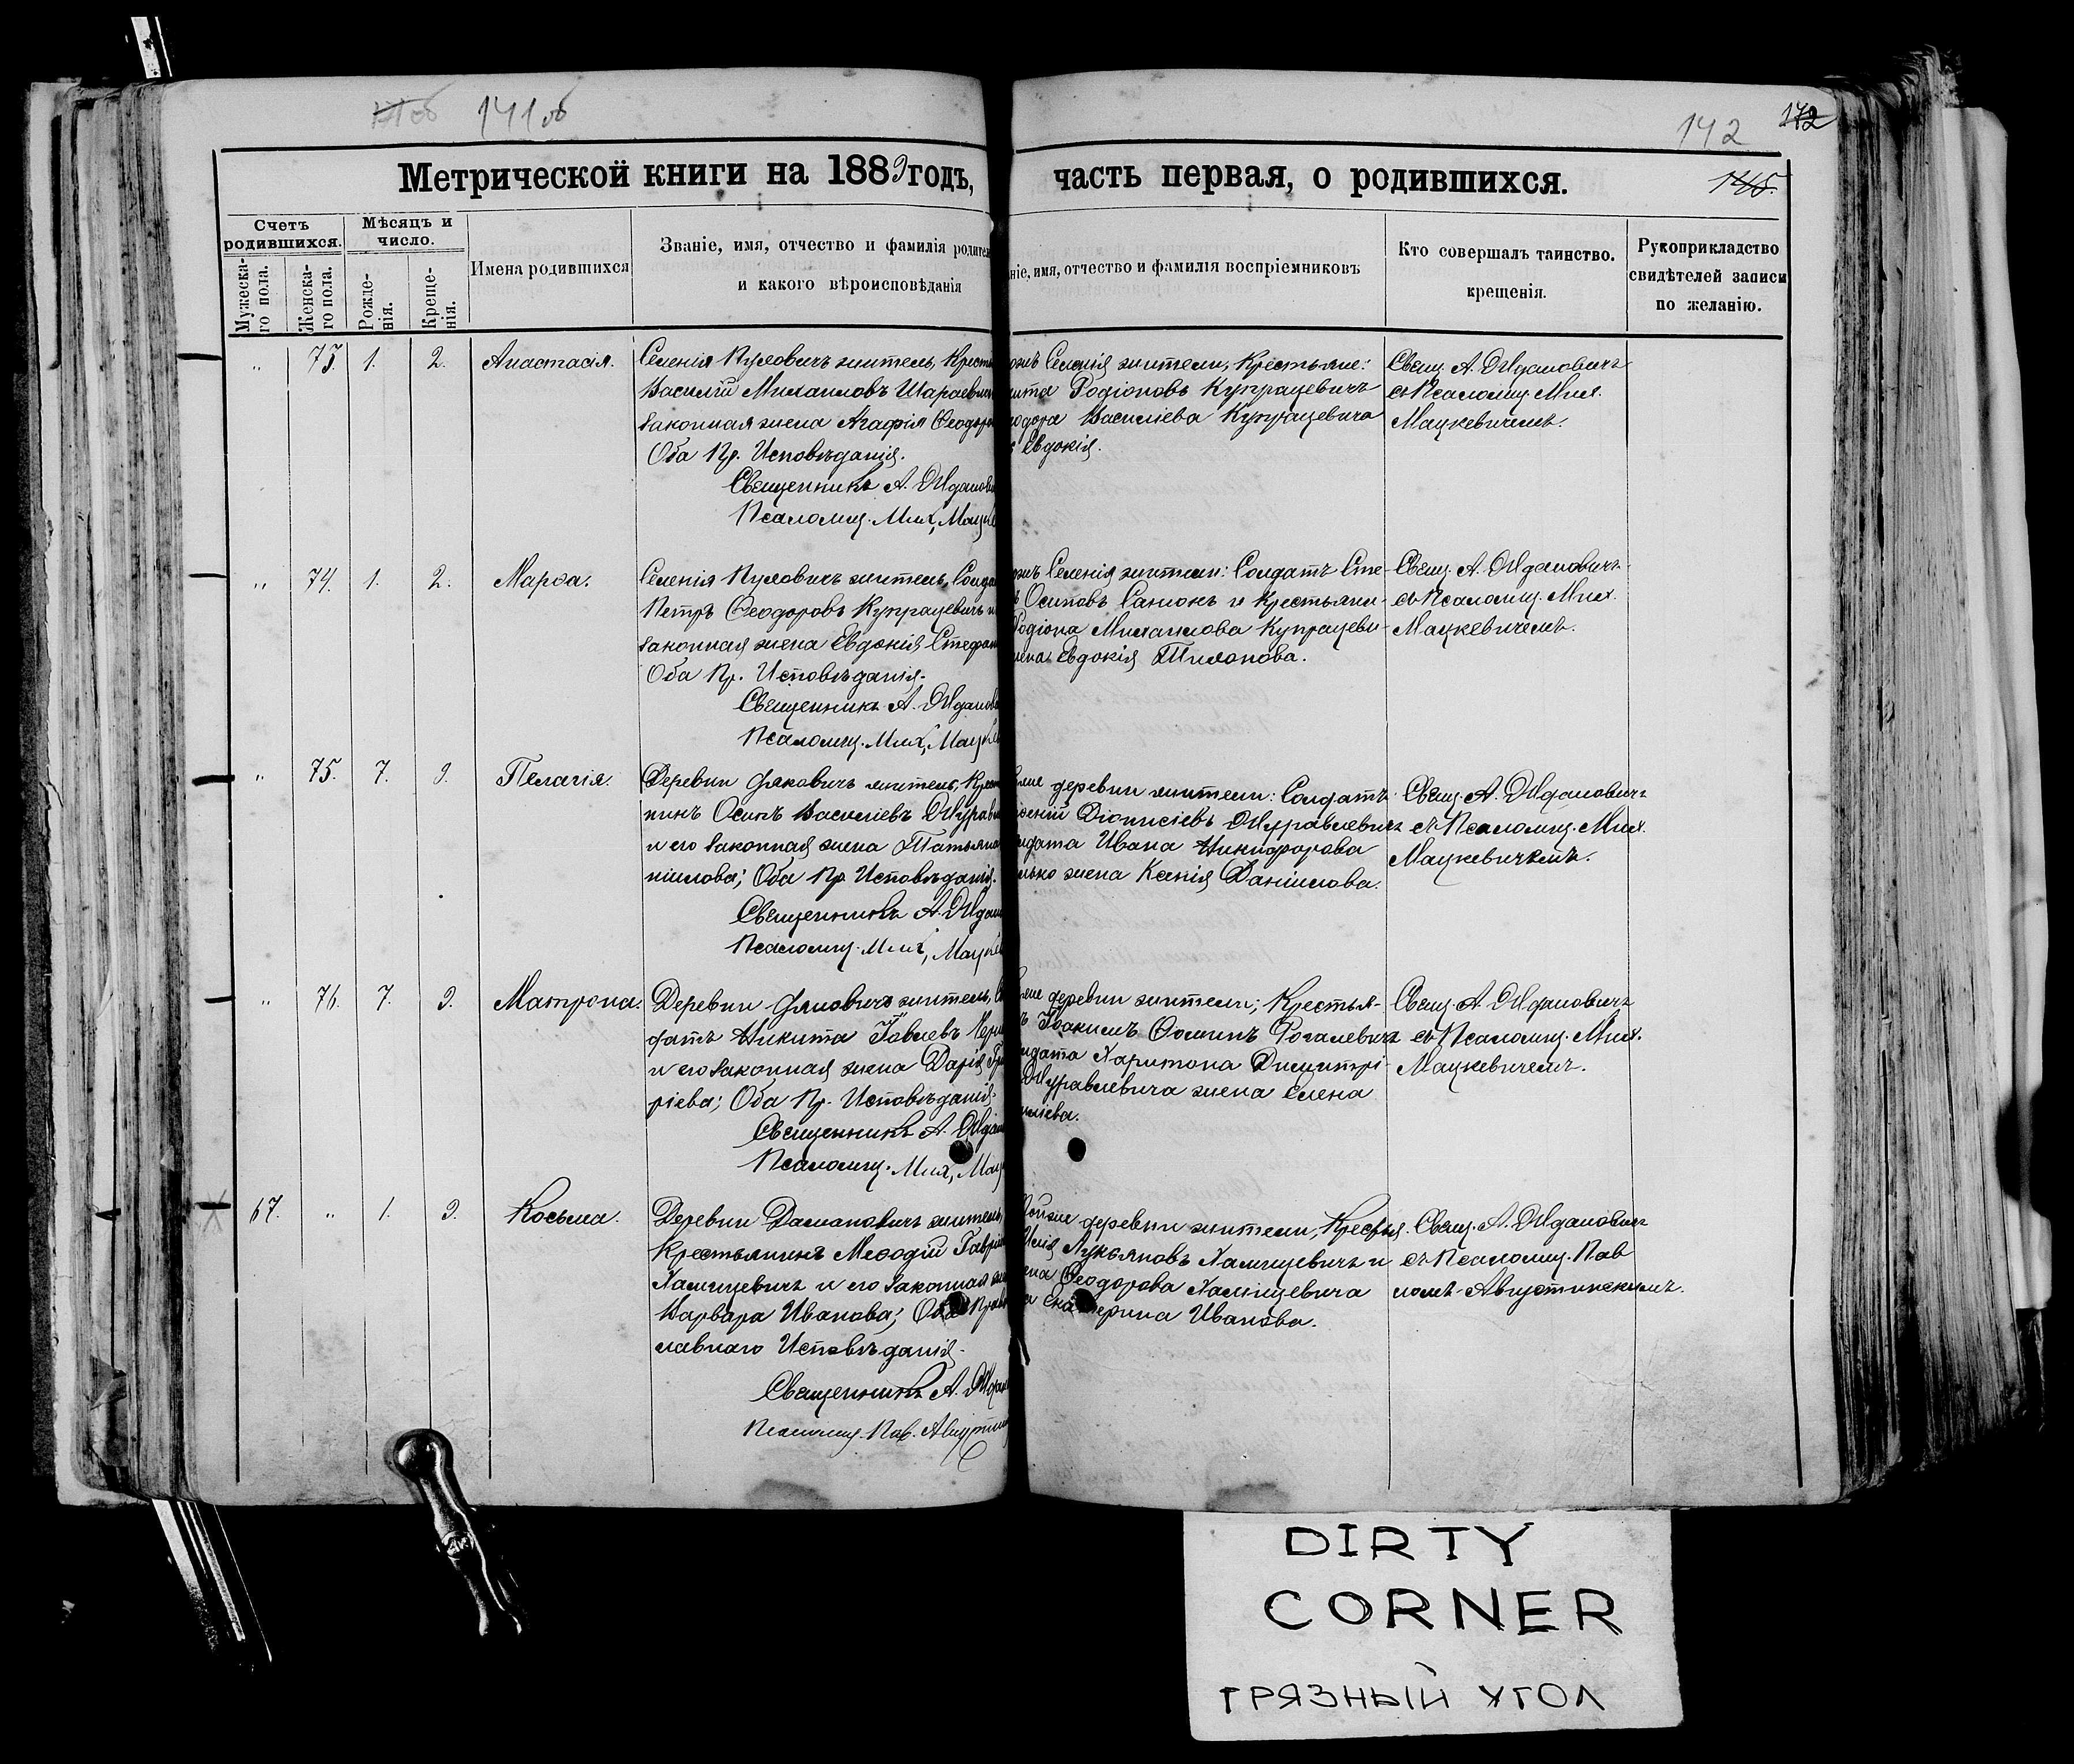 141 об
142
172
145.
Метрической книги на 1889 годъ, часть первая, о родившихся.
Счетъ родившихся.
Мужеска-
го пола.
Женска-
го пола.
Мѣсяцъ и число.
Рожде-
нія.
Креще-
нія.
Имена родившихся
Званіе, имя, отчество и фамилія родите
и какого вѣроисповѣданія
ніе, имя, отчество и фамилія воспріемниковъ
Кто совершалъ таинство.
крещенія.
Рукоприкладство
свидѣтелей записи
по желанію.
" 73. 1. 2. Анастасія.
Селенія Пуховичъ житель, Крест
Василій Михаиловъ
законная жена Агафія Ѳеодоро
Оба Пр. Исповѣданія.
Священникъ А. Жданов
Псаломщ. Мих. Мацк
Селенія жители, Крестьяне:
Родіоновъ Купрацевичъ
Василіева Купрацевича
Евдокія.
Свящ. А. Ждановичъ
съ Псаломщ. Мих.
Мацкевичемъ.
" 74. 1. 2. Марѳа.
Селенія Пуховичъ житель, Солда
Петръ Ѳеодоровъ Купрацевичъ и
законная жена Евдокія Стефан
Оба Пр. Исповѣданія.
Священникъ А. Жданов
Псаломщ. Мих. Мацк
Селенія жители: Солдатъ Сте-
Осиповъ Санюкъ и Крестьяни-
Родіона Михаилова Купрацеви-
жена Евдокія Тихонова.
Свящ. А. Ждановичъ
съ Псаломщ. Мих.
Мацкевичемъ.
" 75. 7. 9. Пелагія.
Деревни житель, Крест
нинъ Осипъ Василіевъ Журав
и его законная жена Татьяна
ніилова; Оба Пр. Исповѣданія.
Священникъ А. Ждан
Псаломщ. Мих. Мацке
деревни жители: Солдатъ
Діонисіевъ Журавлевичъ
Ивана Никифорова
жена Ксенія Даніилова.
Свящ. А. Ждановичъ
съ Псаломщ. Мих.
Мацкевичемъ.
" 76. 7. 9. Матрона.
Деревни житель, Со
датъ Никита Іовлевъ
и его законная жена Дарія Гри
ріева; Оба Пр. Исповѣданія.
Священникъ А. Ждан
Псаломщ. Мих. Мац
деревни жители; Крестья-
Іоакимъ Ѳоминъ Рогалевичъ
Харитона Димитрі-
Журавлевича жена Елена
Свящ. А. Ждановичъ
съ Псаломщ. Мих.
Мацкевичемъ.
67. " 1. 9. Косьма.
Деревни Даманович житель,
Крестьянинъ Меѳодій Гаврі
Халицевичъ и его законная же
Варвара Иванова; Оба Право
славнаго Исповѣданія.
Священникъ А. Ждан
Псаломщ. Пав. Августин
деревни жители, Крестья.
Лукьяновъ Халицевичъ и
Ѳеодорова Халицевича
Екатерина Иванова.
Свящ. А. Ждановичъ
съ Псаломщ. Пав
ломъ Августинскимъ.
DIRTY
CORNER
ГРЯЗНЫЙ УГОЛ